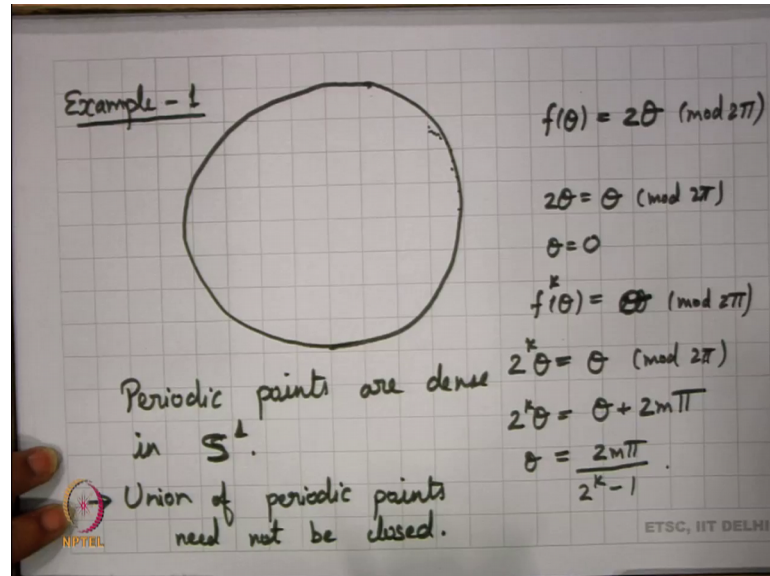 Example - 1
f(θ) = 2θ (mod 2π)
2θ = θ (mod 2π)
θ = 0
fᵏ(θ) = θ (mod 2π)
2ᵏθ = θ (mod 2π)
2ᵏθ = θ + 2mπ
θ = 2mπ / 2ᵏ - 1 .
Periodic points are dense
in S¹.
→ Union of periodic points
need not be closed.
NPTEL
ETSC, IIT DELHI